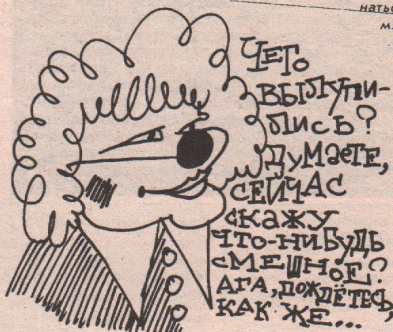 натьс
м.
ЧЕГО
ВЫЛУПИ-
ЛИСЬ?
ДУМАЕТЕ,
СЕЙЧАС
СКАЖУ
ЧТО-НИБУДЬ
СМЕШНОЕ?
АГА, ДОЖДЁТЕСЬ,
КАК ЖЕ...